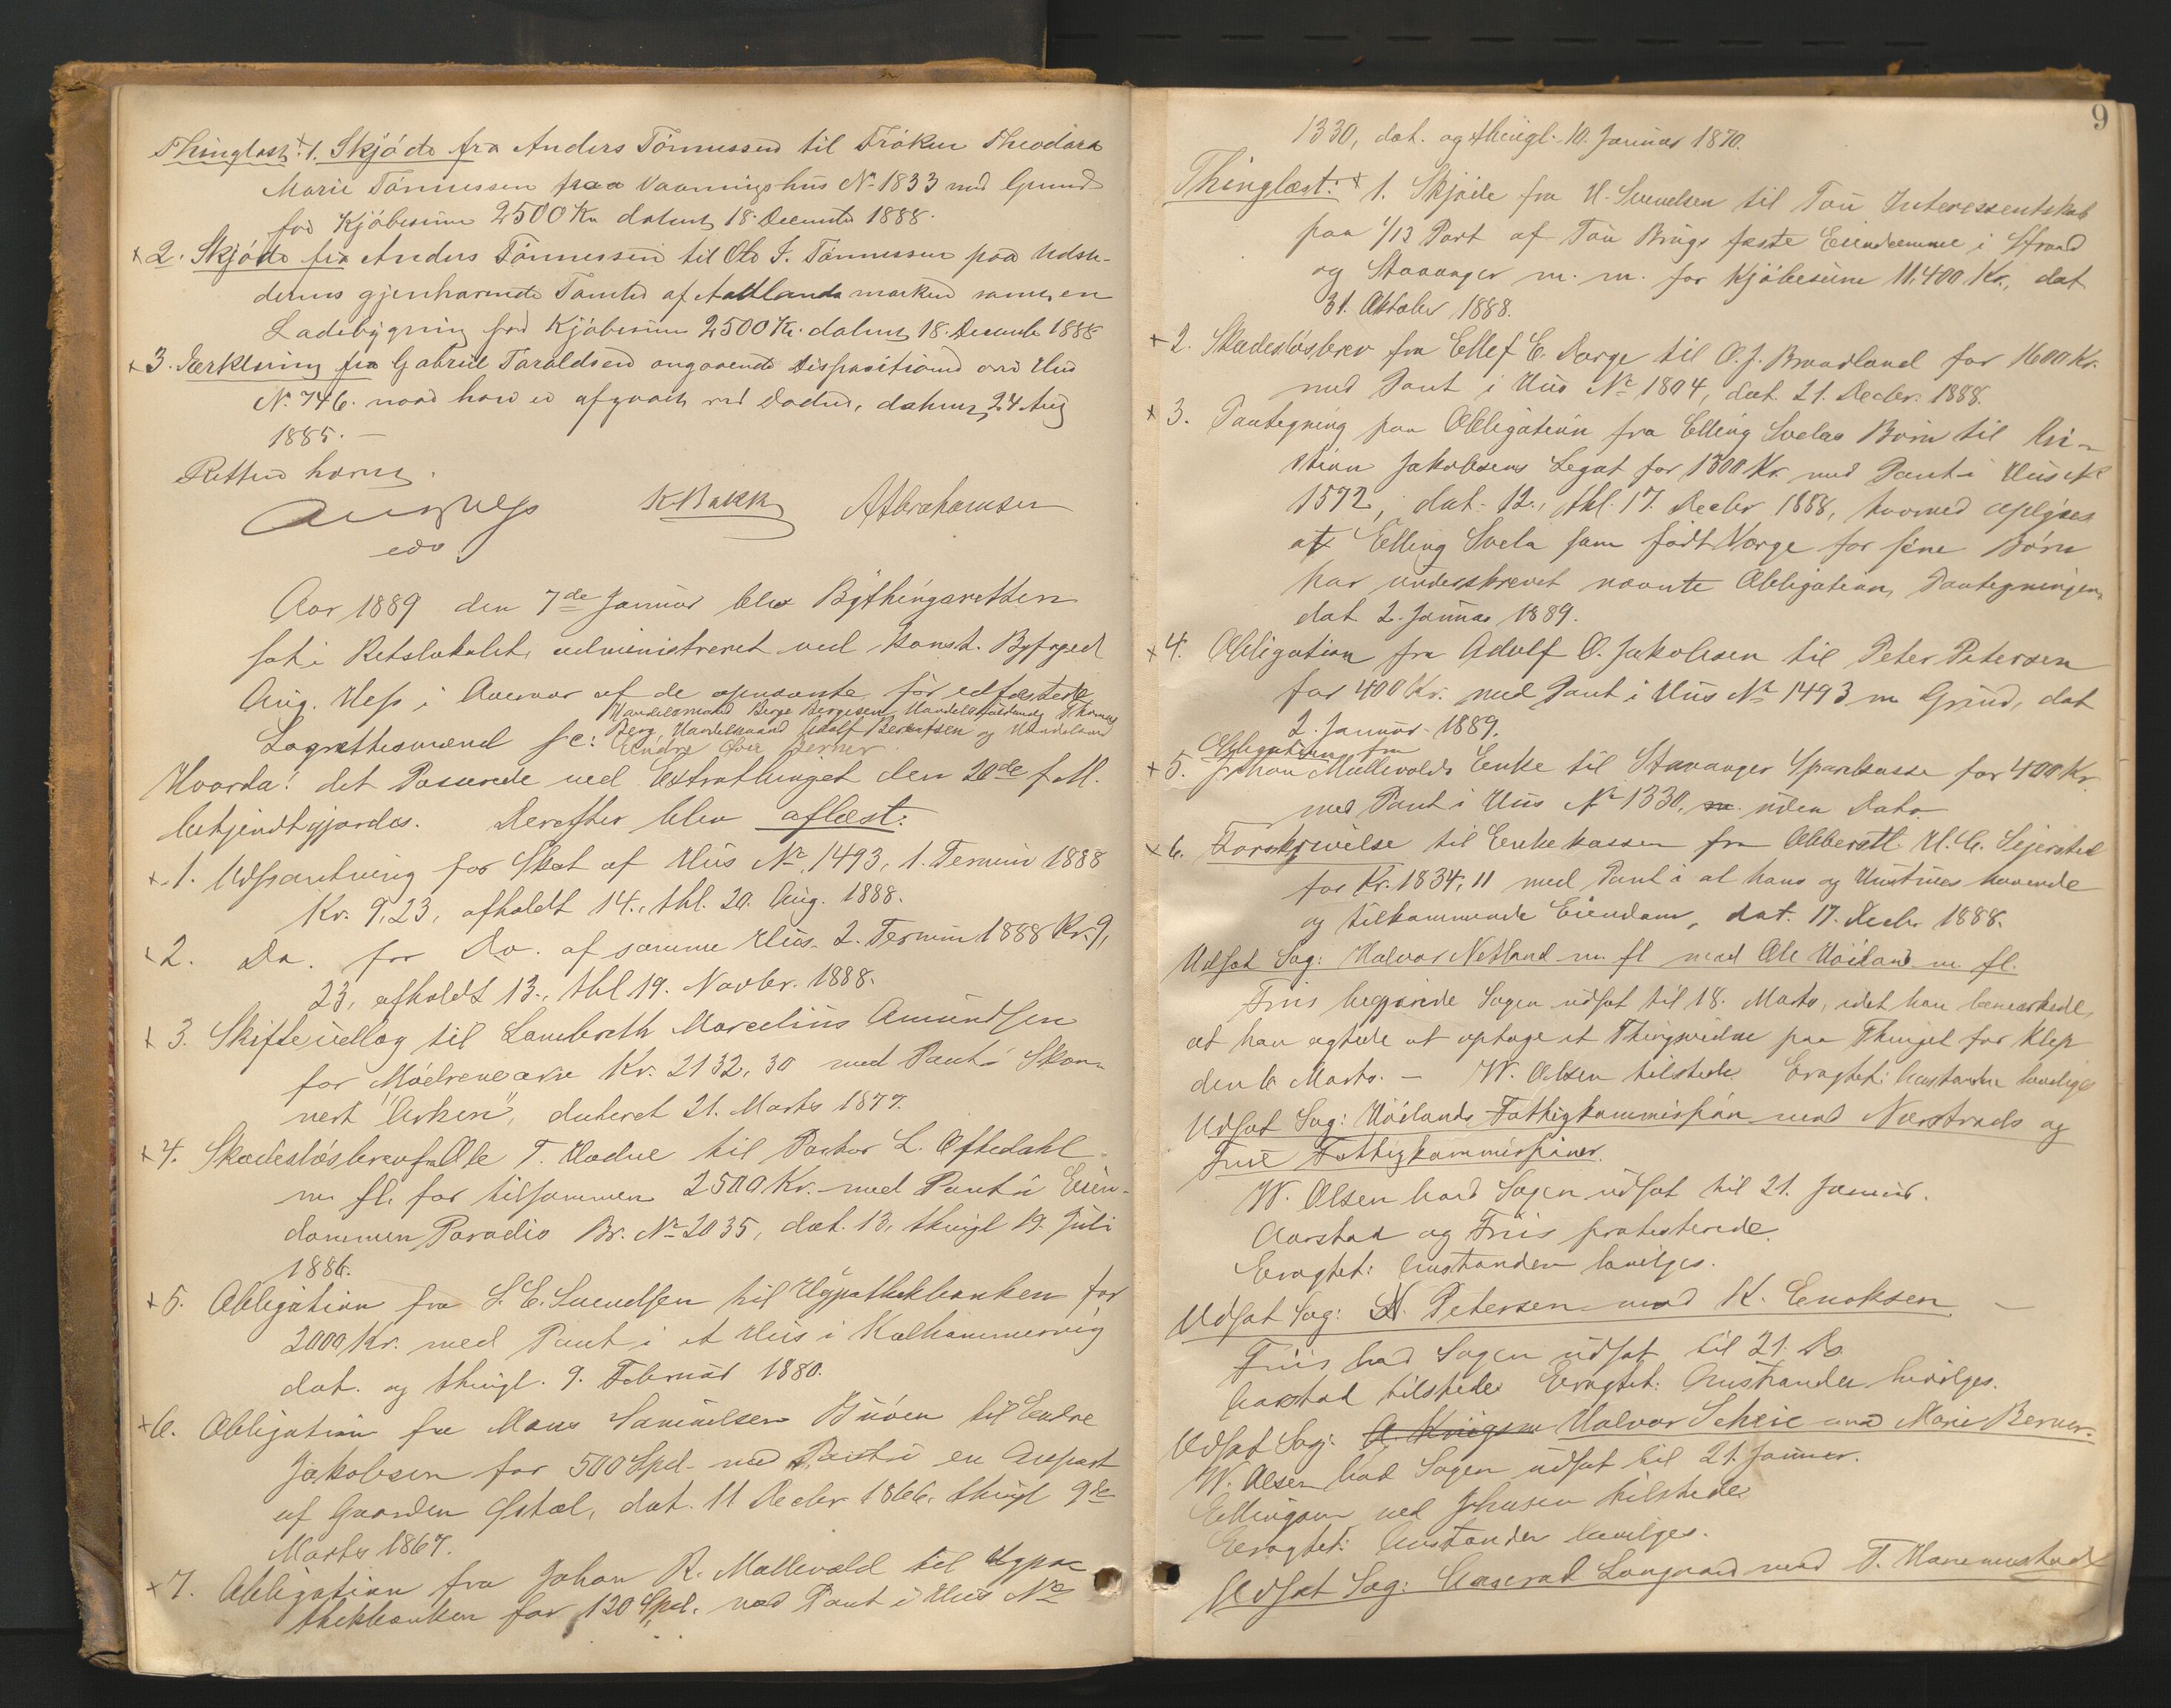 Thinglæst: + 1. Skjöde fra Anders Tönnessen til Fröken Theodora
Marie Tönnessen paa Vaaningshus No 1833 med Grund
for Kjöbesum 2500 Kr dateret 18. December 1888.
+ 2. Skjöde fra Anders Tönnessen til Ole J. Tönnessen paa Udste-
derens gjenhavende Tomter af marken samt en
Ladebygning for Kjöbesum 2500 Kr. dateret 18. Decemb 1888
+ 3. Erklæring fra Gabriel Taraldsen angaaende Dispositionen over Hus
No. 746. naar han er afgaaet ved Døden, dateret 24 Aug
1885. —
Retten hævet.
Aug Hess K Bakk A Abrahamsen
edv
Aar 1889 den 7de Januar blev Bythingsretten
sat i Retslokalet, administreret ved Konst. Byfoged
Aug. Hess i Overvær af de opnævnte, før edfæstede
Handelsmand Berge Bergesen, Handelsfuldmægt Thomas
Berg, Handelsmand Adolf Berentsen og Handelsmand
Lagrettesmænd s:c: Endre Over Berner.
Hvorda: det Passerede ved Extrathinget den 20de f. M.
bekjendtgjordes. Derefter blev aflæst:
+ 1. Udpantning for Skat af Hus No 1493, 1. Termin 1888
Kr. 9,23, afholdt 14., thl. 20. Aug. 1888.
+ 2. Do. for Do. af samme Hus 2. Termin 1888 Kr. 9,
23, afholdt 13., thl 19. Novbr. 1888.
+ 3. Skifteudlæg til Lambreth Marcelius Amundsen
for Mødrenearv Kr. 2132,30 med Pant i Skon-
nert "Arken", dateret 21. Marts 1877.
+ 4. Skadesløsbrev fra Ole T. Hodne til Pastor L. Oftedahl
m. fl. for tilsammen 2500 Kr. med Pant i Eien-
dommen Paradis Br. No 2035, dat. 13, thingl 19. Juli
1886.
+ 5. Obligation fra S. E. Svendsen til Hypothekbanken for
2000 Kr. med Pant i et Hus i Kalhammervig
dat. og thingl. 9. Februar 1880.
+ 6. Obligation fra Mons Samuelsen Buøen til Endre
Jakobsen for 500 Spd. med Pant i en Anpart
af Gaarden, dat. 11 Decbr 1866. thingl 9de
Marts 1867.
+ 7. Obligation fra Johan R. Mollevold til Hypo-
thekbanken for 120 Spd. med Pant i Hus No
9
1330, dat. og thingl. 10. Januar 1870.
Thinglæst: + 1. Skjøde fra H. Svendsen til Tou Interessentskab
paa 1/13 Part af Tou Brugs faste Eiendomme i Strand
og Stavanger m. m. for Kjøbesum 11,400 Kr., dat
31. Oktober 1888.
+ 2. Skadesløsbrev fra Ellef E. Dorge til O. J. Braadland for 1600 Kr.
med Pant i Hus No 1804, dat. 21. Decbr. 1888.
+ 3. Paategning paa Obligation fra Elling Svelas Børn til Kri-
stian Jakobsens Legat for 1300 Kr. med Pant i Hus No
1572, dat. 12., thl. 17. Decbr 1888, hvorved oplyses
at Elling Svela som født Værge for sine Børn
har underskrevet nævnte Obligation, Paategningen
dat 2. Januar 1889.
+ 4. Obligation fra Adolf O. Jakobsen til Peter Petersen
for 400 Kr. med Pant i Hus No 1493 m Grund, dat
2. Januar 1889.
Obligation fra
+ 5. Johan Mollevolds Enke til Stavanger Sparekasse for 400 Kr.
med Pant i Hus No 1330, uden Dato.
+ 6. Forskrivelse til Enkekassen fra Obberstl. H. C. Sejersted
for Kr. 1834,11 med Pant i al hans og Hustrues havende
og tilkommende Eiendom, dat. 17. Decbr 1888.
Udsat Sag: Halvor Netland m. fl mod Ole Høiland m. fl.
Friis begjærede Sagen udsat til 18. Marts, idet han bemærkede,
at han agtede at optage et Thingsvidne paa Thinget for Klep
den 6 Marts. — W. Olsen tilstede. Eragtet: Anstanden bevilges
Udsat Sag: Høilands Fattigkommission mod Nærstrands og
Fattigkommissioner.
W. Olsen bad Sagen udsat til 21. Januar.
Aarstad og Friis protesterede.
Eragtet: Anstanden bevilges.
Udsat Sag: N. Petersen mod K. Enoksen —
Friis bad Sagen udsat til 21. Ds.
Aarstad tilstede. Eragtet: Anstanden bevilges.
Udsat Sag: Halvor Scheie mod Marie Berner.
W. Olsen bad Sagen udsat til 21. Januar.
Ellingsen ved Johnsen tilstede
Eragtet: Anstanden bevilges.
Udsat Sag: Langaard mod T. Hanemustad